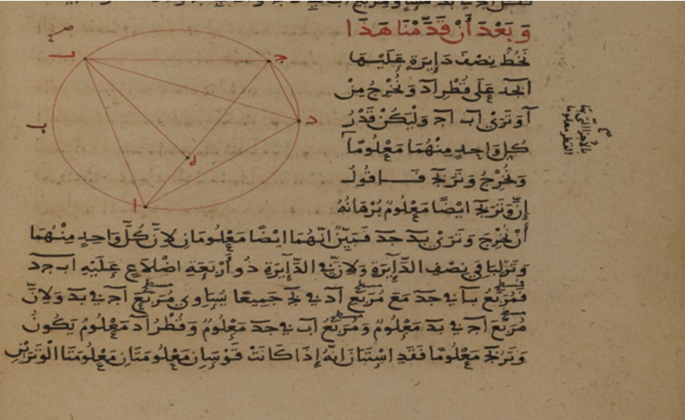 وَبَعْدَ أَنْ قَدَّمْنَا هَذَا
نَخُطُّ نِصْفَ دَايِرَةٍ عَلَيْهَا
ابجد عَلَى قُطْرِ اد وَنُخْرِجُ مِنْ
ا وَتَرَيْ اب اج وَلْيَكُنْ قَدْرُ
كُلِّ وَاحِدٍ مِنْهُمَا مَعْلُومًا
وَنُخْرِجُ وَتَرَ بج فاقولُ
إِنَّ وَتَرَ بج ايْضًا مَعْلُومٌ بُرْهَانُهُ
أَنْ نُخْرِجَ وَتَرَيْ بد جد فَبَيِّنٌ انَّهُمَا ايْضًا مَعْلُومَانِ لِانَّ كُلَّ وَاحِدٍ مِنْهُمَا
وَتَرٌ لِبَاقِي نِصْفِ الدَّايِرَةِ وَلِانَّ فِي الدَّايِرَةِ ذُو أَرْبَعَةِ اضْلَاعٍ عَلَيْهِ ابجد
فَمُرَبَّعُ اب في جد مَعَ مُرَبَّعِ اد في بج جَمِيعًا يُسَاوِي مُرَبَّعَ اج في بد وَلِانَّ
مُرَبَّعَ اج في بد مَعْلُومٌ وَمُرَبَّعُ اب في جد مَعْلُومٌ وَقُطْرُ اد مَعْلُومٌ يَكُونُ
وَتَرُ بج مَعْلُومًا فَقَدِ اسْتَبَانَ انَّهُ إِذَا كَانَتْ قَوْسَانِ مَعْلُومَتَانِ مَعْلُومَتَا الْوَتَرَيْنِ
بالاجزا التي بها
القطر معلوما
صح
ب
ج
د
ا